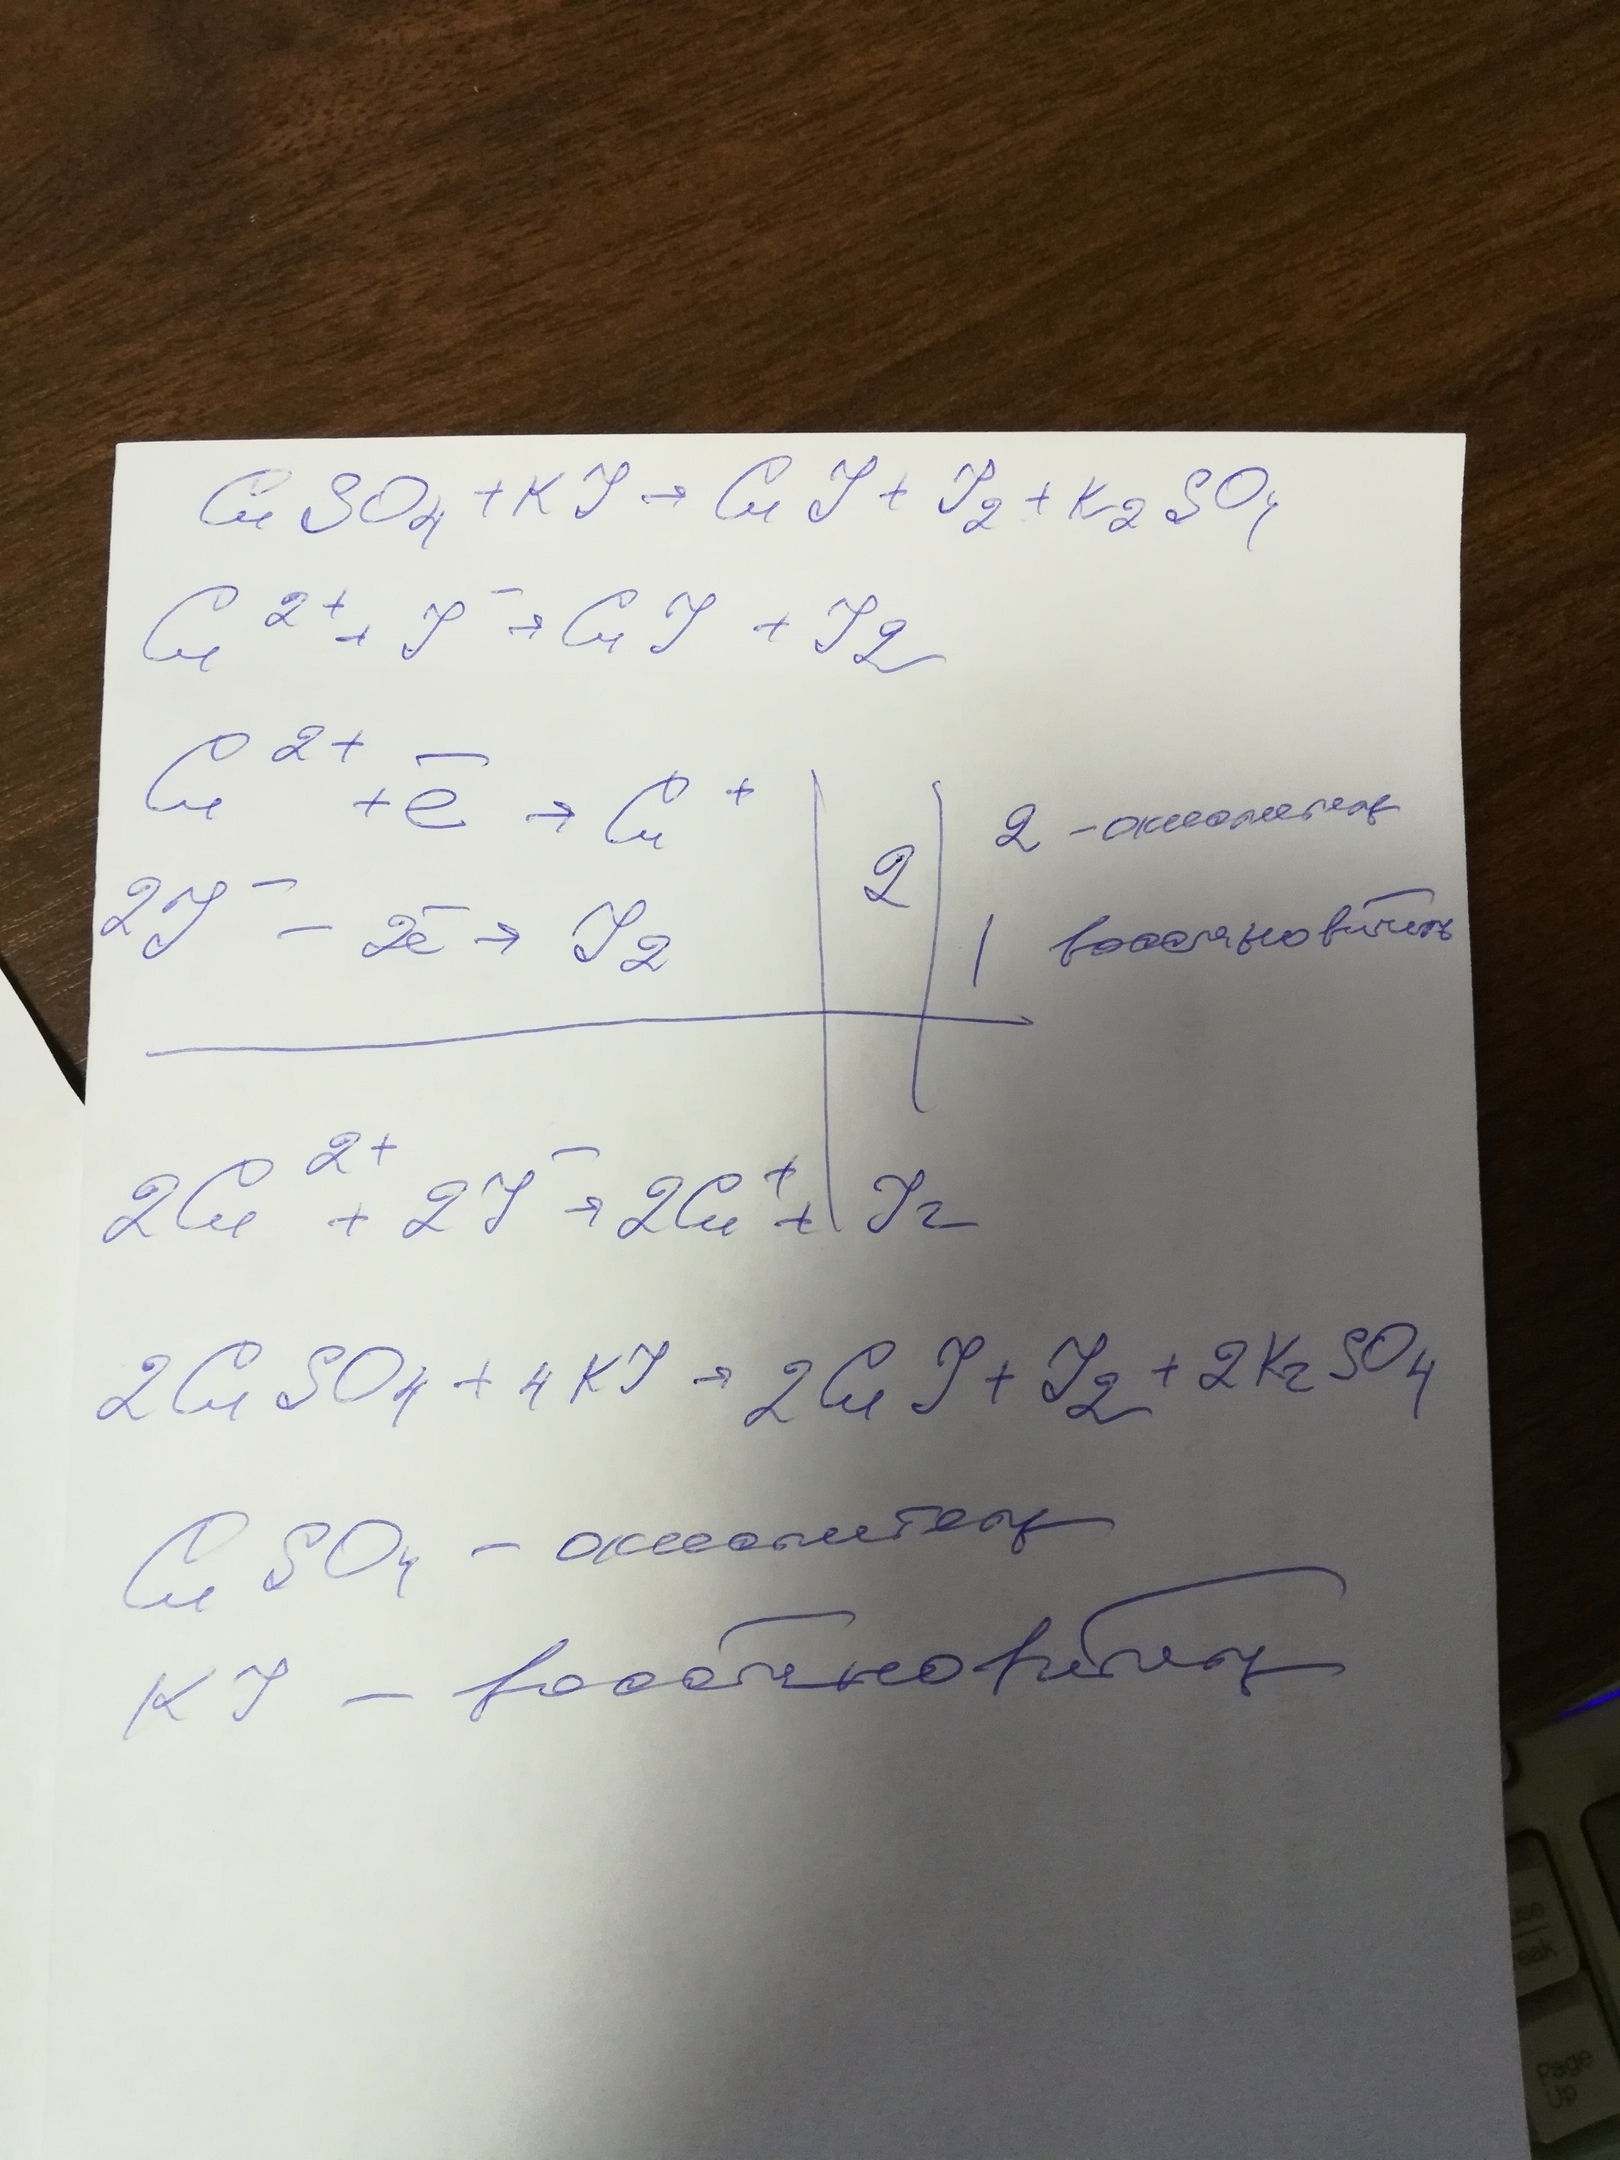 CuSO₄ + KJ → CuJ + J₂ + K₂SO₄
Cu²⁺ + J⁻ → CuJ + J₂
Cu²⁺ + ē → Cu⁺ | 2 | 2 - окислитель
2J⁻ - 2ē → J₂ | | 1 восстановитель
2Cu²⁺ + 2J⁻ → 2Cu⁺ + J₂
2CuSO₄ + 4KJ → 2CuJ + J₂ + 2K₂SO₄
CuSO₄ - окислитель
KJ - восстановитель
Page
Up